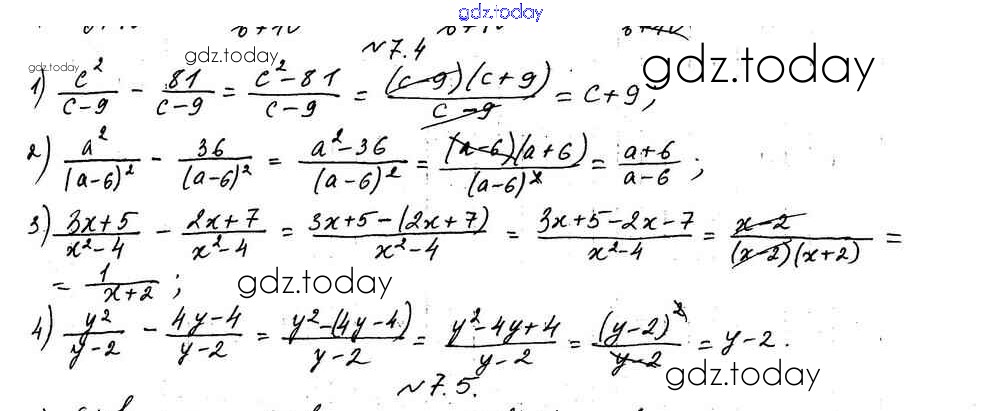 gdz.today
№7.4
gdz.today gdz.today gdz.today
1) c²/(c-9) - 81/(c-9) = (c²-81)/(c-9) = (c-9)(c+9)/(c-9) = c+9;
2) a²/(a-6)² - 36/(a-6)² = (a²-36)/(a-6)² = (a-6)(a+6)/(a-6)² = (a+6)/(a-6);
3) (3x+5)/(x²-4) - (2x+7)/(x²-4) = (3x+5-(2x+7))/(x²-4) = (3x+5-2x-7)/(x²-4) = (x-2)/((x-2)(x+2)) =
= 1/(x+2);
gdz.today
4) y²/(y-2) - (4y-4)/(y-2) = (y²-(4y-4))/(y-2) = (y²-4y+4)/(y-2) = (y-2)²/(y-2) = y-2.
gdz.today
№7.5.